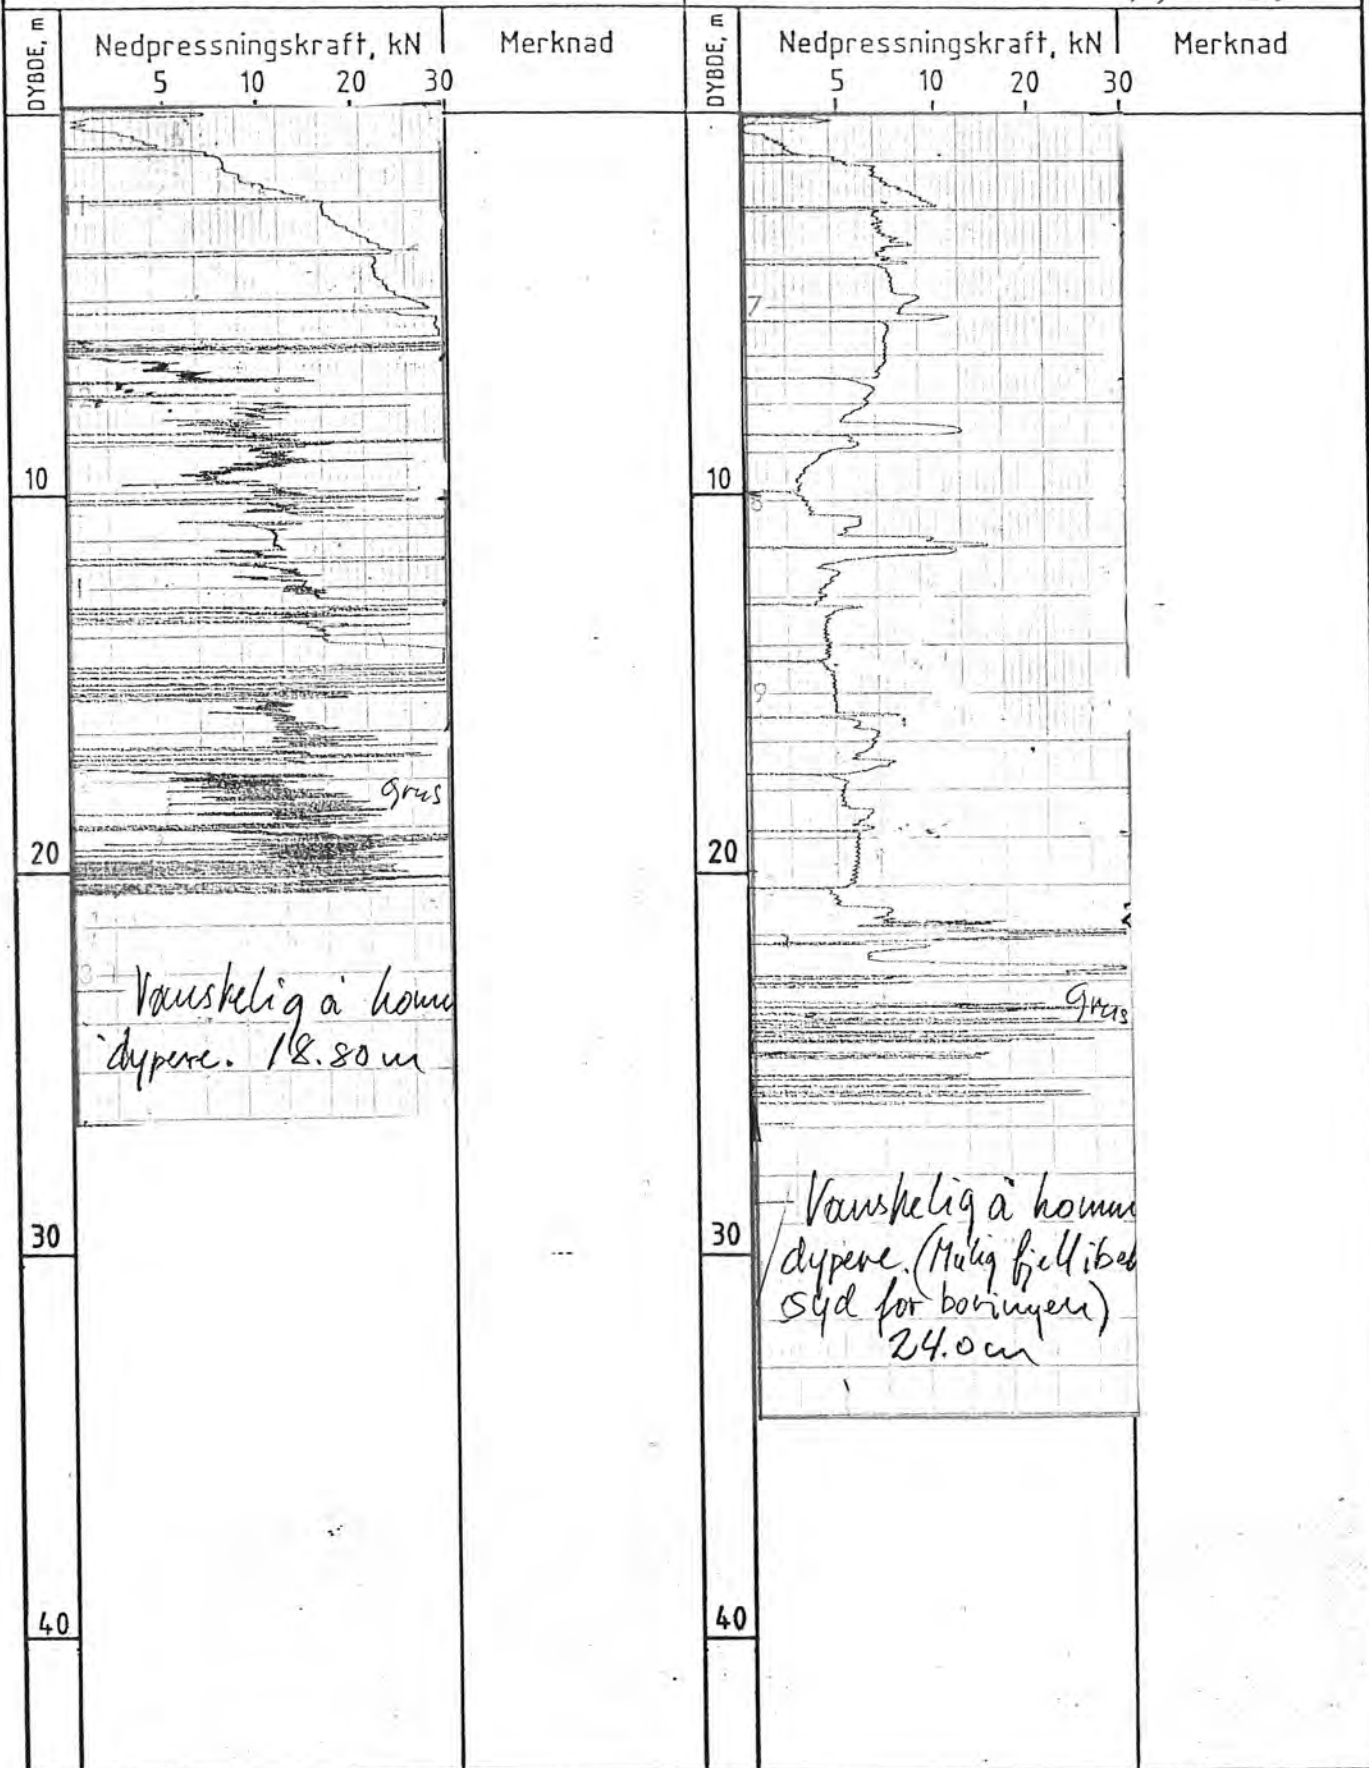 DYBDE, m
Nedpressningskraft, kN
Merknad
5 10 20 30
10
grus
20
Vanskelig å komm
dypere. 18.80m
30
40
DYBDE, m
Nedpressningskraft, kN
Merknad
5 10 20 30
7
10
8
9
20
Grus
Vanskelig å komm
30
dypere. (Mulig fjell ibak
syd for boringen)
24.0m
40